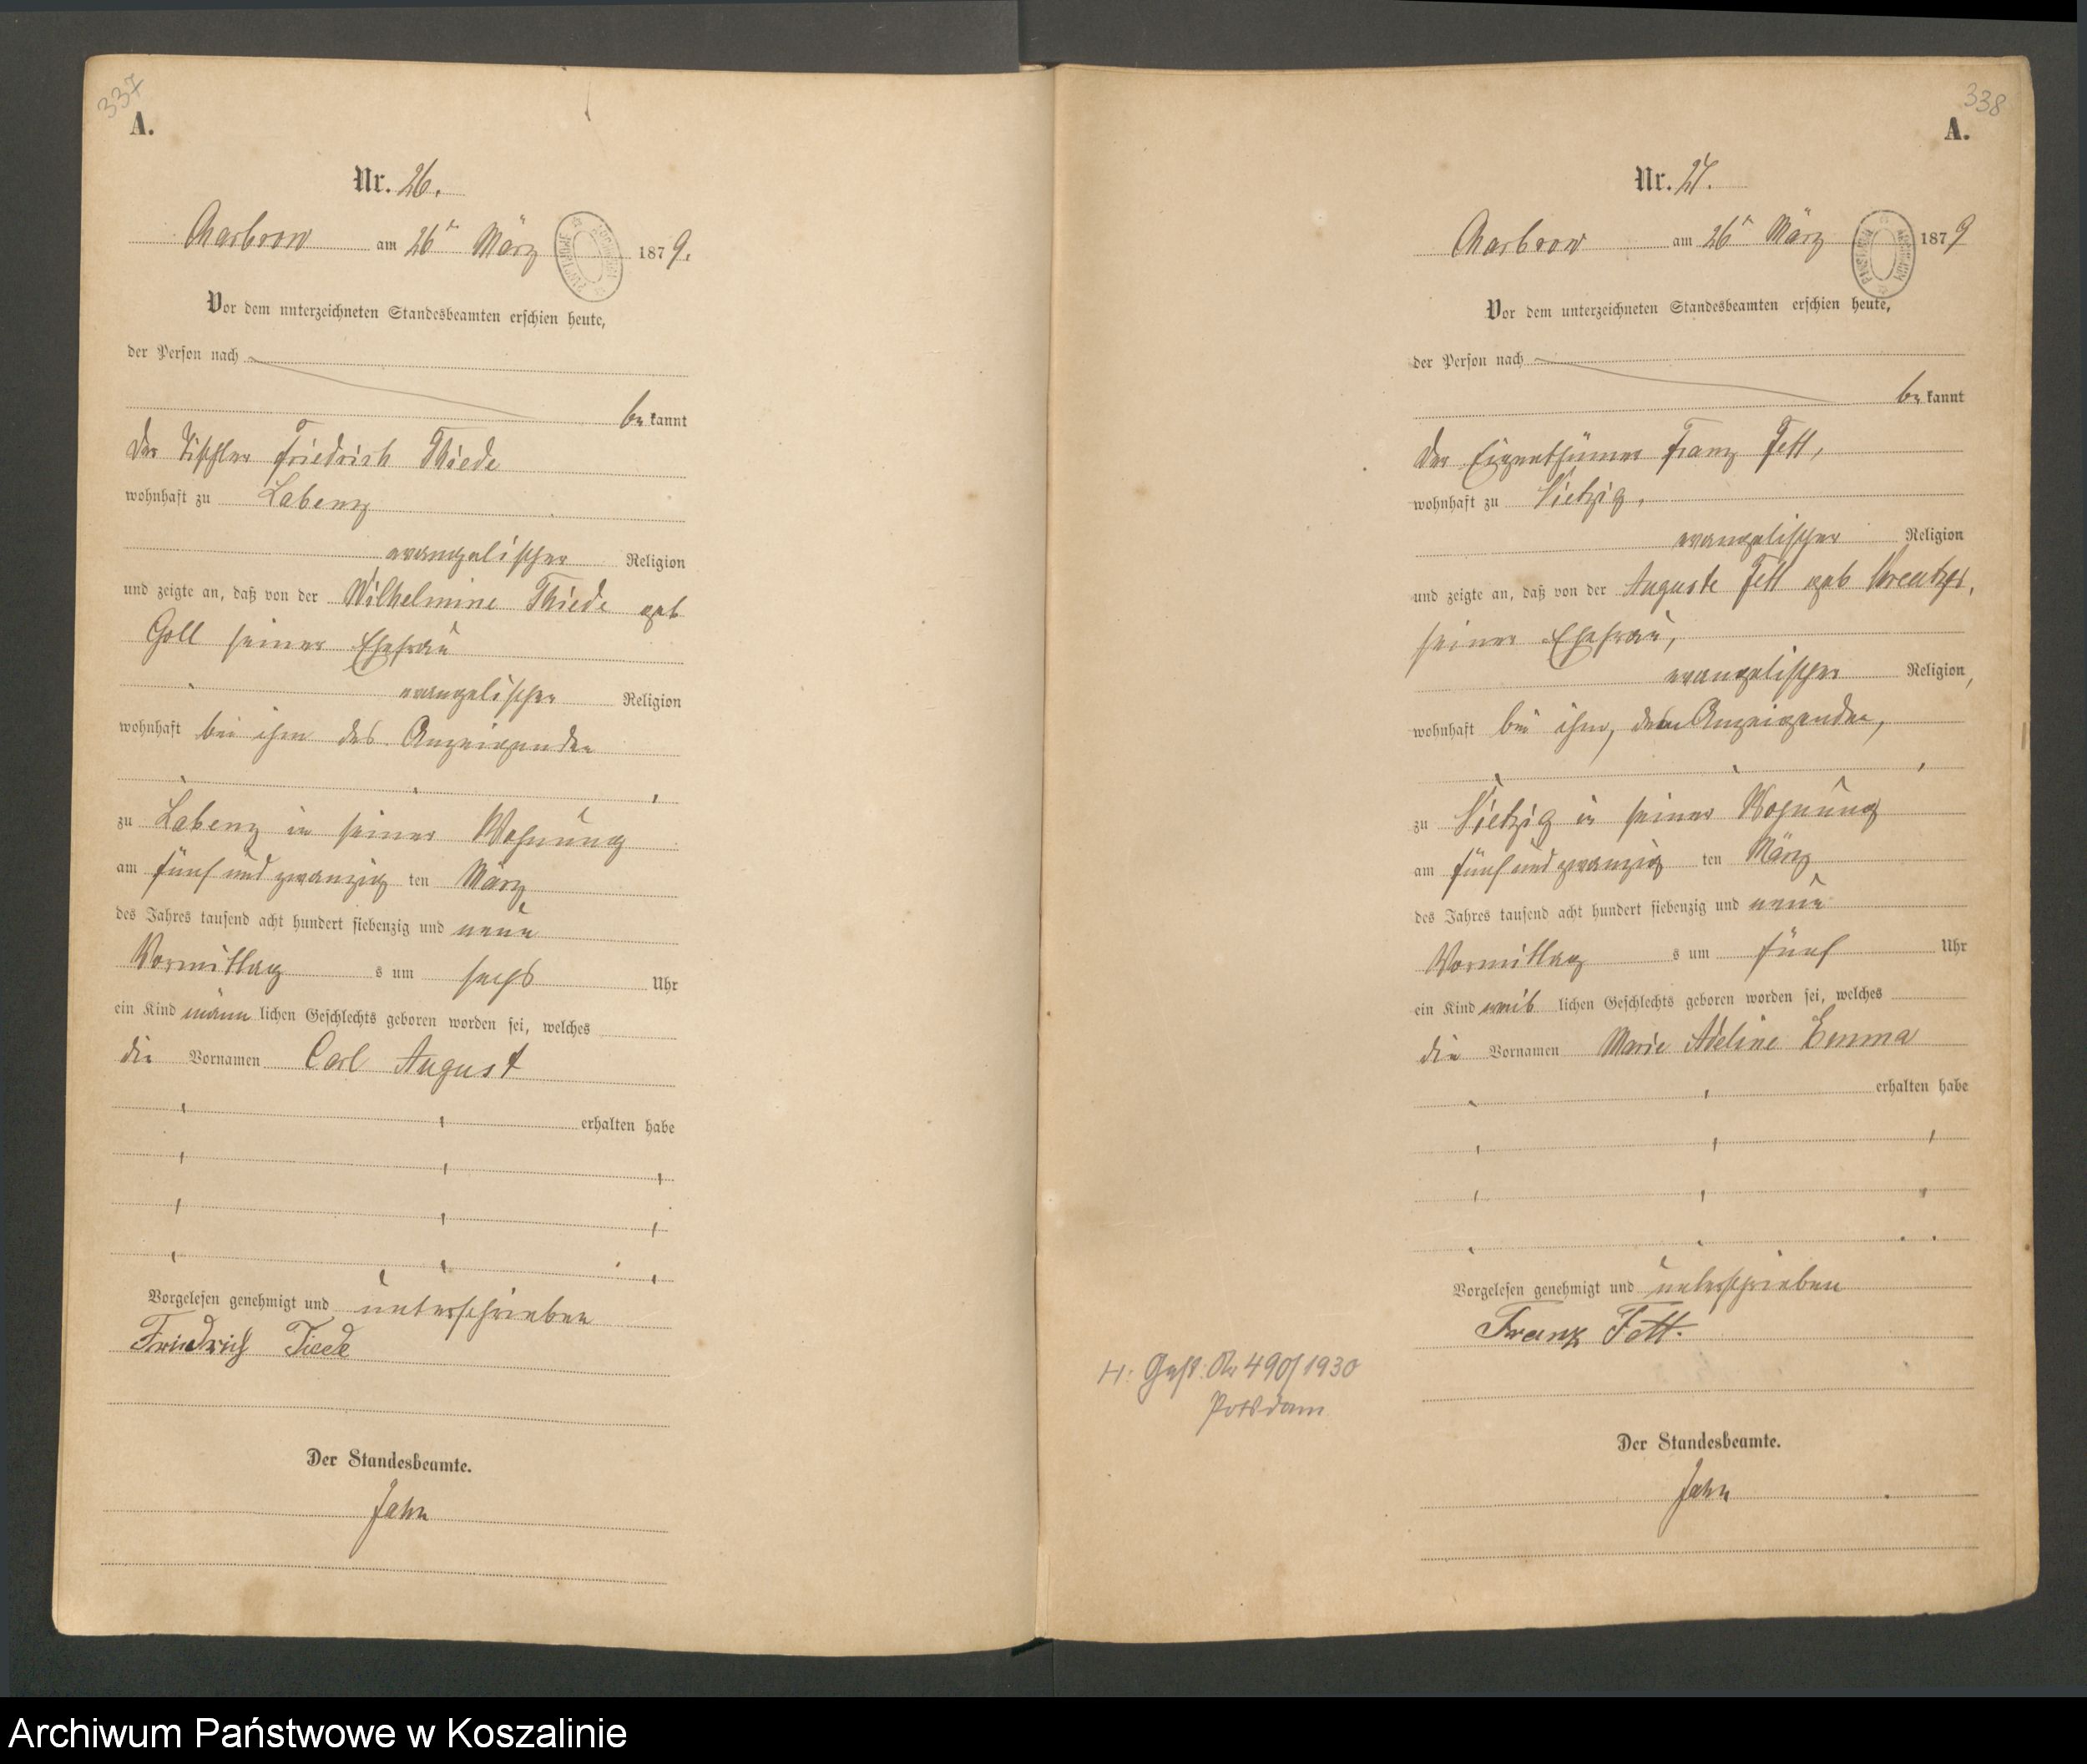 337
A.
Nr. 26.
Charbrow am 26ten März 1879.
Vor dem unterzeichneten Standesbeamten erschien heute,
der Person nach
bekannt
der Tischler Friedrich Thiede
wohnhaft zu Labenz
evangelischer Religion
und zeigte an, daß von der Wilhelmine Thiede geb
Goll seiner Ehefrau
evangelischer Religion
wohnhaft bei ihm des Anzeigenden
zu Labenz in seiner Wohnung
am fünf und zwanzig ten März
des Jahres tausend acht hundert siebenzig und neun
Vormittag s um sechs Uhr
ein Kind männ lichen Geschlechts geboren worden sei, welches
die Vornamen Carl August
erhalten habe
Vorgelesen genehmigt und unterschrieben
Friedrich Tiede
Der Standesbeamte.
Jahn
338
A.
Nr. 27.
Charbrow am 26ten März 1879
Vor dem unterzeichneten Standesbeamten erschien heute,
der Person nach
bekannt
der Eigenthümer Franz Fett,
wohnhaft zu Vietzig,
evangelischer Religion
und zeigte an, daß von der Auguste Fett geb
seiner Ehefrau,
evangelischer Religion,
wohnhaft bei ihm, dem Anzeigenden,
zu Vietzig in seiner Wohnung
am fünf und zwanzig ten März
des Jahres tausend acht hundert siebenzig und neun
Vormittag s um fünf Uhr
ein Kind weib lichen Geschlechts geboren worden sei, welches
die Vornamen Marie Adeline Emma
erhalten habe
Vorgelesen genehmigt und unterschrieben
Franz Fett.
H: Gest. Nr 490/1930
Potsdam
Der Standesbeamte.
Jahn
Archiwum Państwowe w Koszalinie